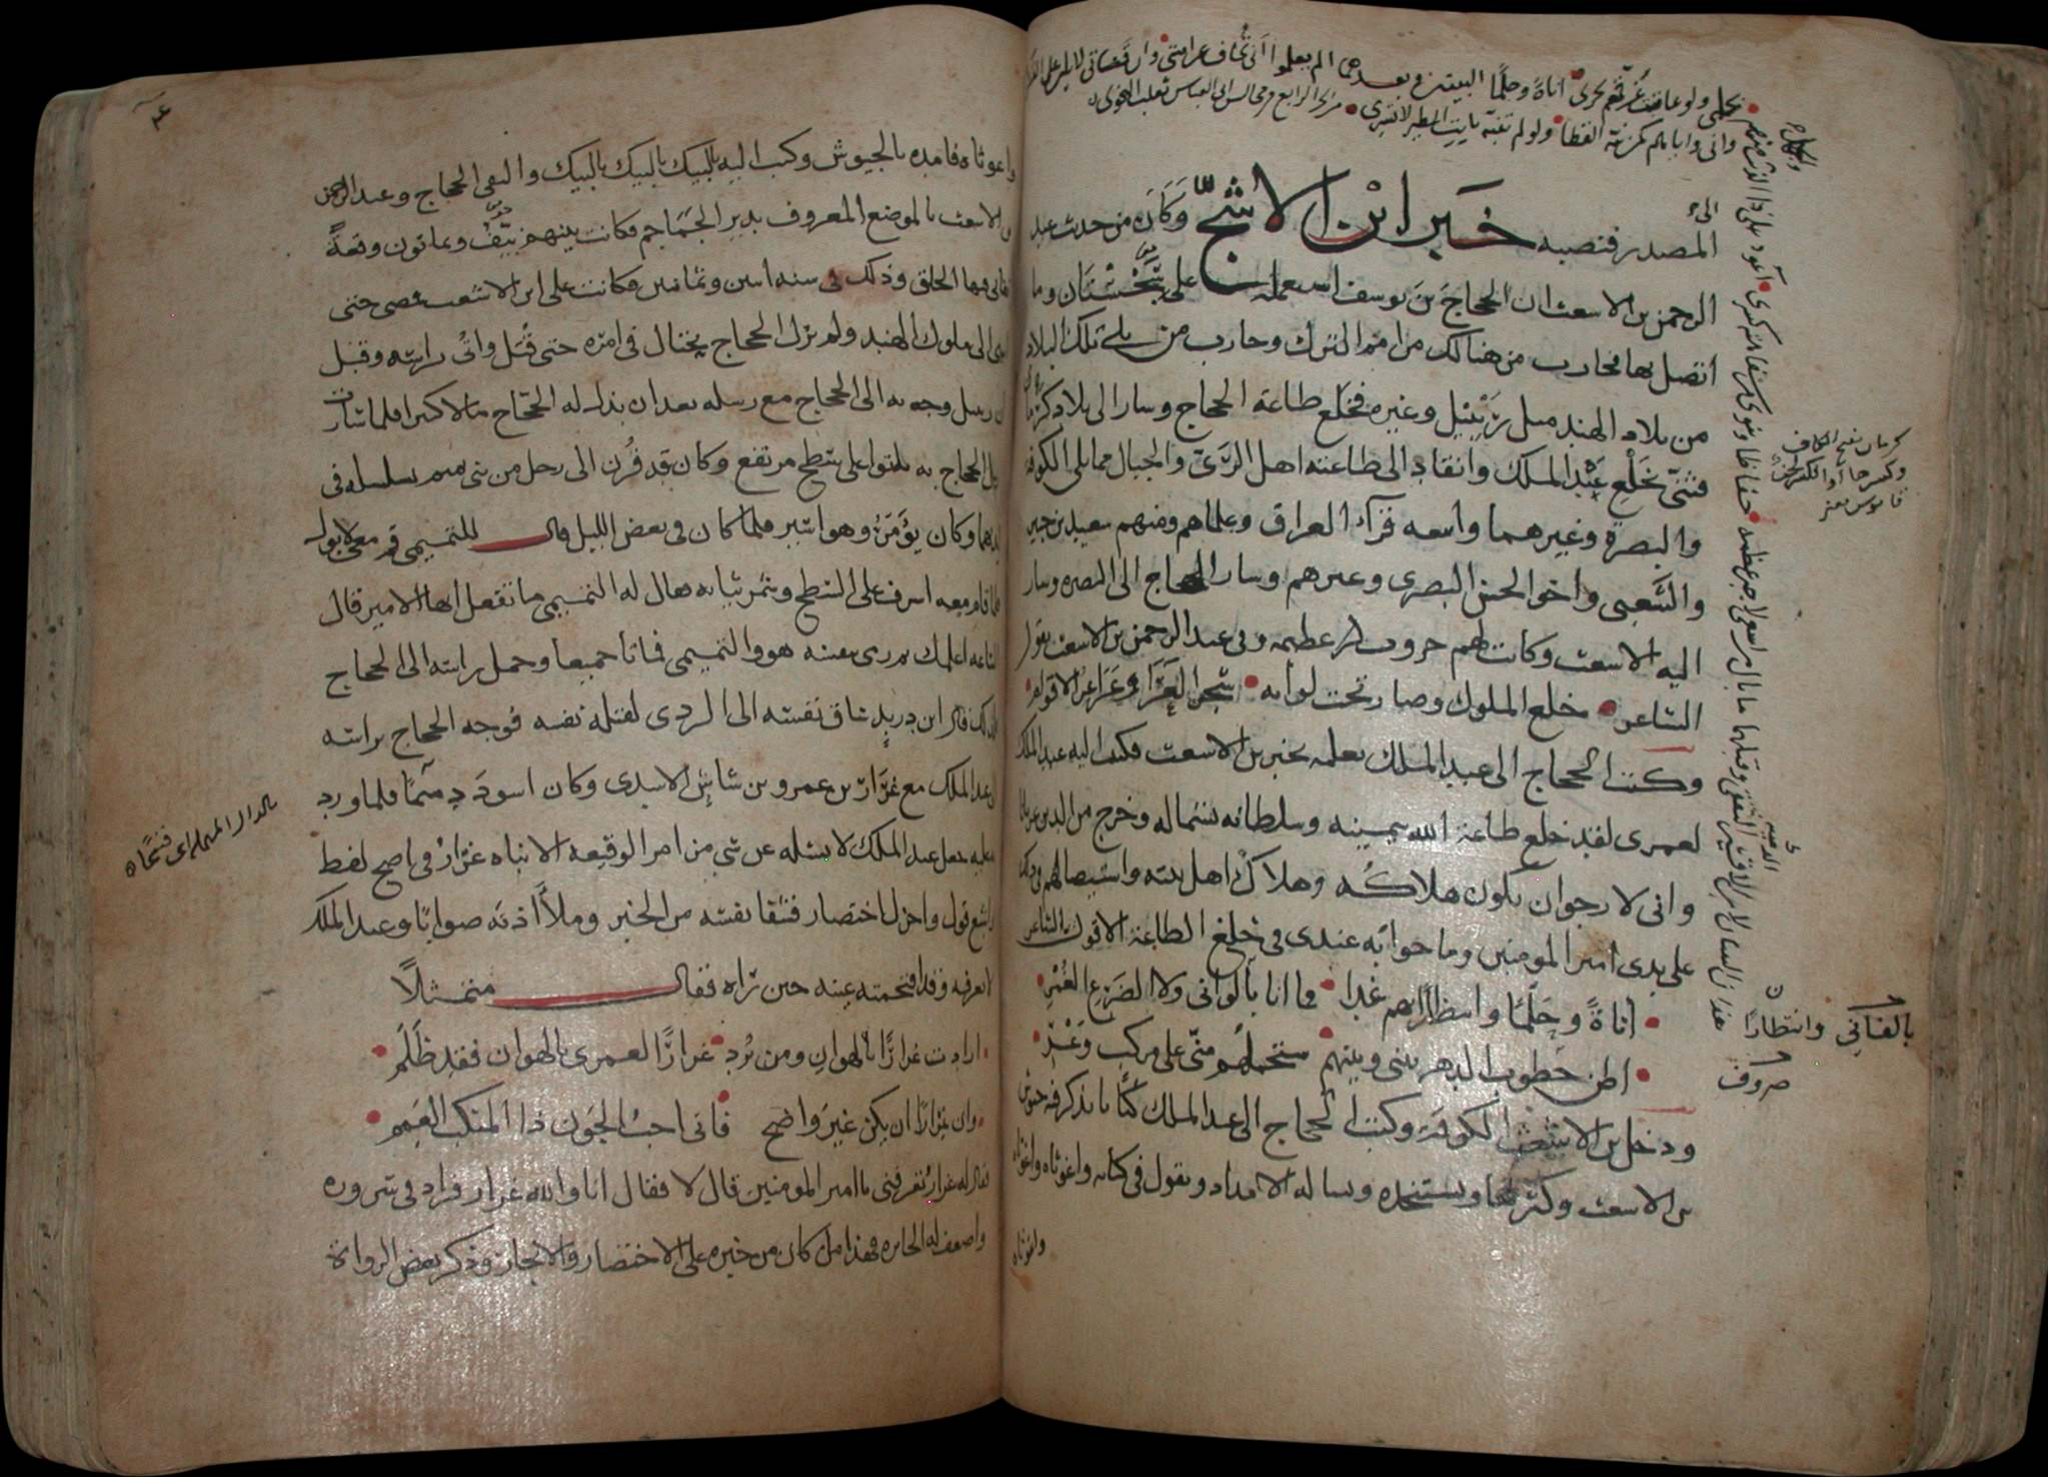 بحلمى ولو عاقبت غرقهم بحرى اناة وحلما البيتين وبعدهما الم يعلموا انى تخاف عرامتى وان قناتى لا تلين على
وانى واياهم كمن نبه القطا ولو لم تنبه باتت الطير لا تسرى من الجزء الرابع من مجالس ابى العباس ثعلب النحوى
المصدر فنصبه خبر ابن الاشج وكان من حدث عبد
الرحمن بن الاشعث ان الحجاج بن يوسف استعمله على سجستان وما
اتصل بها فحارب من هنالك من امم الترك وحارب من يلى تلك البلاد
من بلاد الهند مثل رتبيل وغيره فخلع طاعة الحجاج وسار الى بلاد كرمان
فثنى بخلع عبد الملك وانقاد الى طاعته اهل الرى والجبال مما يلى الكوفة
والبصرة وغيرهما واتبعه قراء العراق وعلماهم ومنهم سعيد بن جبير
والشعبى واخو الحسن البصرى وغيرهم وسار الحجاج الى البصره وسار
اليه الاشعث وكانت لهم حروب عظيمه وفى عبد الرحمن بن الاشعث يقول
الشاعر خلع الملوك وصار تحت لوائه شجر العرا وعراعر الاقوام
وكتب الحجاج الى عبد الملك يعلمه بخبر بن الاشعث فكتب اليه عبد الملك
لعمرى لقد خلع طاعة الله بيمينه وسلطانه بشماله وخرج من الدين عريانا
وانى لارجو ان يكون هلاكه وهلاك اهل بيته واستيصالهم فى ذلك
على يدى امير المومنين وما جوابه عندى فى خلع الطاعة الا قول الشاعر
اناة وحلما وانتظارا بهم غدا فما انا بالوانى ولا الضرع الغمر
اظن خطوب الدهر بينى وبينهم ستحملهم منى على مركب وعر
ودخل بن الاشعث الكوفة وكتب الحجاج الى عبد الملك كتابا يذكر فيه جيوش
بن الاشعث وكثرتها ويستنجده ويساله الامداد ويقول فى كتابه واغوثاه واغوثاه
واغوثاه
كرمان بفتح الكاف
وكسرها
بالفانى وانتظارا
صروف
واغوثاه فامده بالجيوش وكتب اليه يالبيك يالبيك يالبيك والتقى الحجاج وعبد الرحمن
بن الاشعث بالموضع المعروف بدير الجماجم فكانت بينهم نيف وثمانون وقعة
تفانى فيها الخلق وذلك فى سنه اثنين وثمانين فكانت على ابن الاشعث فمضى حتى
انتهى الى ملوك الهند ولم يزل الحجاج يحتال فى امره حتى قتل واتى براسه وقيل
ان رتبيل وجه به الى الحجاج مع رسله بعد ان بذل له الحجاج مالا كثيرا فلما سار
رسل الحجاج به باتوا على سطح مرتفع وكان قد قرن الى رجل من بنى تميم بسلسله فى
ايديهما وكان يؤمر وهو اسير فلما كان فى بعض الليل قال للتميمى قم معى لابول
فلما قام معه اشرف على السطح وشمر ثيابه فقال له التميمى ما تفعل ايها الامير قال
الساعه اعلمك فرمى بنفسه هو والتميمى فماتا جميعا وحمل راسه الى الحجاج
فلذلك قال ابن دريد ساق نفسه الى الردى لقتله نفسه فوجه الحجاج براسه
الى عبد الملك مع عرار بن عمرو بن شاش الاسدى وكان اسود دميما فلما ورد
عليه جعل عبد الملك لا يسئله عن شى من امر الوقيعه الا انباه عرار فى اصح لفظ
واشبع قول واجزل اختصار فشفا نفسه من الخبر وملأ اذنه صوابا وعبد الملك
لا يعرفه وقد اقتحمته عينه حين رآه فقال متمثلاً
ارادت عرارًا بالهوان ومن يرد عرارًا لعمرى بالهوان فقد ظلم
وان عرارًا ان يكن غير واضح فانى احب الجون ذا المنكب العمم
فقال له عرار تعرفنى يا امير المومنين قال لا فقال انا والله عرار فزاد فى سروره
واضعف له الجايزه فهذا من كان من خبره على الاختصار والايجاز وذكر بعض الرواة
بالدال المهمله اى قبيحا